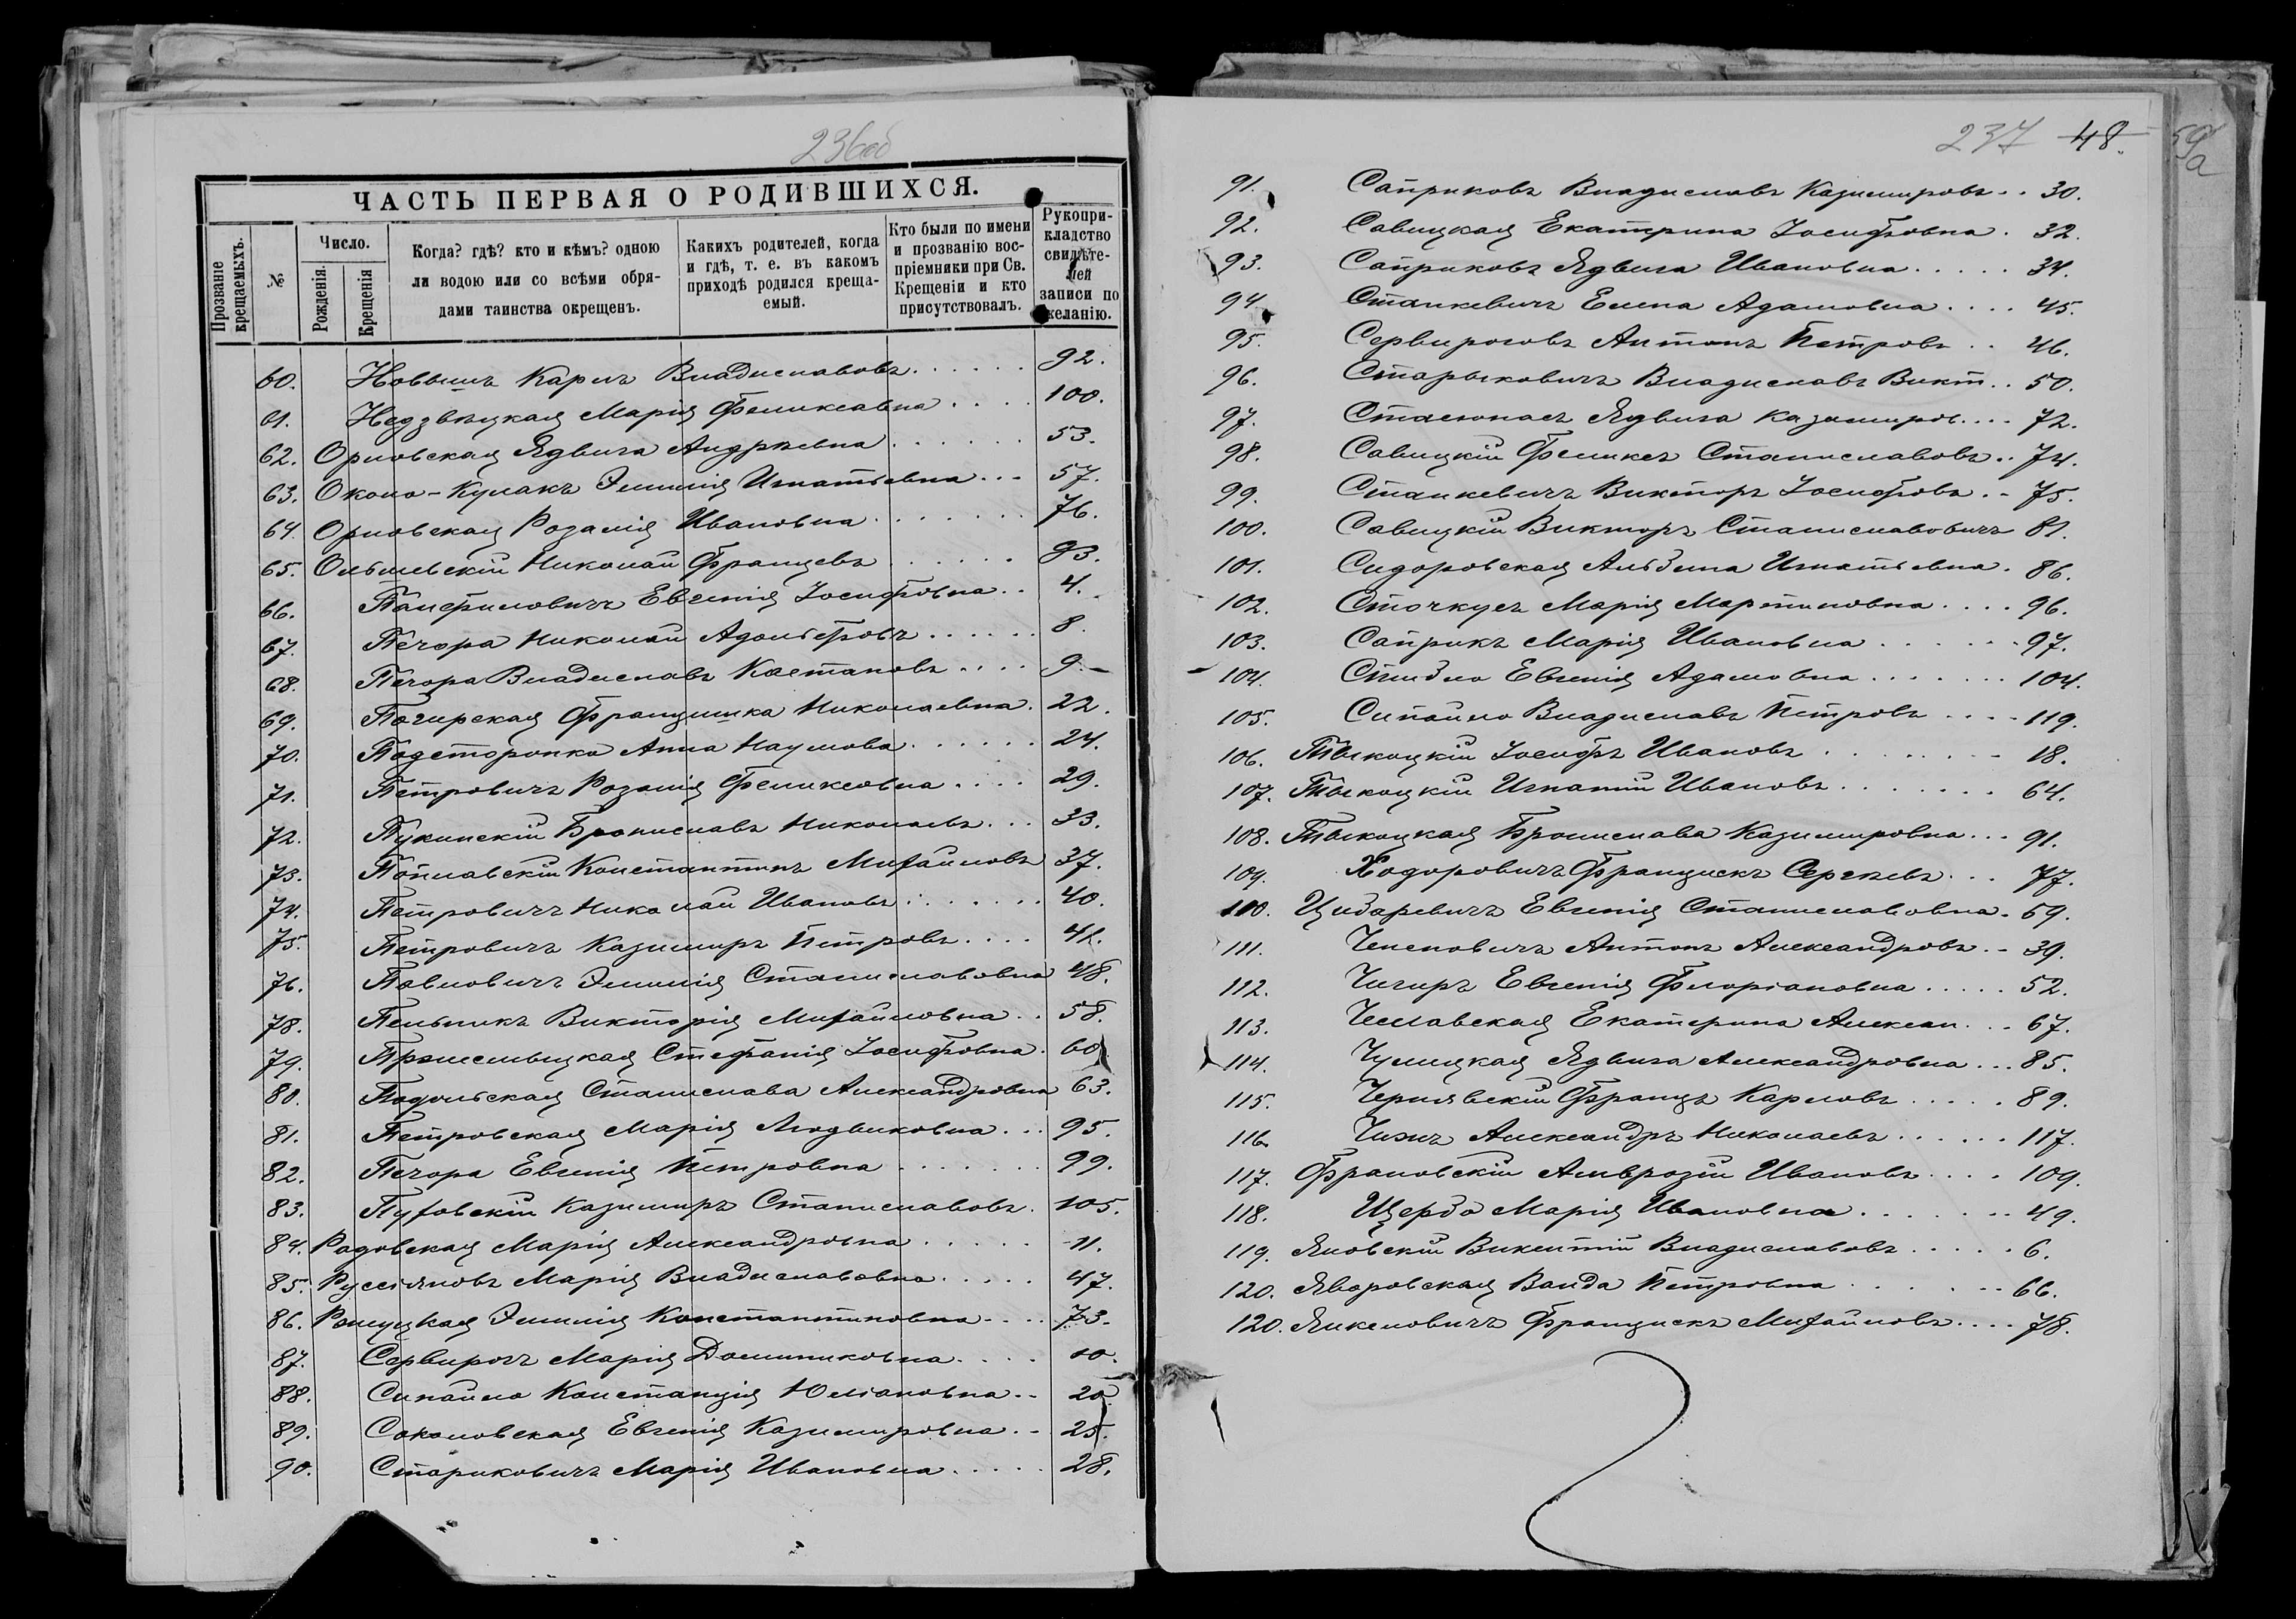 236об
ЧАСТЬ ПЕРВАЯ О РОДИВШИХСЯ.
Прозваніе крещаемыхъ.
№
Число.
Рожденія.
Крещенія
Когда? гдѣ? кто и кѣмъ? одною ли водою или со всѣми обрядами таинства окрещенъ.
Какихъ родителей, когда и гдѣ, т. е. въ какомъ приходѣ родился крещаемый.
Кто были по имени и прозванію воспріемники при Св. Крещеніи и кто присутствовалъ.
Рукоприкладство свидѣтелей записи по желанію.
60. Новвишъ Карлъ Владиславовъ...... 92.
61. Недзвѣцкая Марія Феликсавна.... 100.
62. Орловская Ядвига Андреевна...... 53.
63. Около-Кулакъ Эмилія Игнатьевна... 57.
64. Орловская Розалія Ивановна....... 76.
65. Ольшевскій Николай Францевъ...... 93.
66. Панфиловичъ Евгенія Іосифовна.. 4.
67. Печора Николай Адольфовъ...... 8.
68. Печора Владиславъ Каетановъ.... 9.
69. Погирская Францишка Николаевна. 22.
70. Подсторонко Анна Наумова...... 24.
71. Петровичъ Розалія Феликсовна.... 29.
72. Пукинскій Брониславъ Николаевъ... 33.
73. Поплавскій Константинъ Михайловъ 37.
74. Петровичъ Николай Ивановъ....... 40.
75. Петровичъ Казимиръ Петровъ.... 41.
76. Павловичъ Эмилія Станиславовна 48.
78. Пельникъ Викторія Михайловна.. 58.
79. Стефанія Іосифовна. 60
80. Подольская Станислава Александровна 63.
81. Петровская Марія Людвиковна... 95.
82. Печора Евгенія Петровна....... 99.
83. Пуховскій Казимиръ Станиславовъ. 105.
84. Радовская Марія Александровна..... 11.
85. Руссіяновъ Марія Владиславовна..... 47.
86. Ромуцкая Эмилія Константиновна.... 73.
87. Сервирогъ Марія Доминиковна.... 10.
88. Сипайло Констанція Юліановна.. 20
89. Соколовская Евгенія Казимировна.. 25.
90. Стариковичъ Марія Ивановна..... 28.
237 48.
59а
91. Саприковъ Владиславъ Казимировъ.. 30.
92. Савицкая Екатерина Іосифовна. 32.
93. Саприковъ Ядвига Ивановна..... 34.
94. Станкевичъ Елена Адамовна.... 45.
95. Сервироговъ Антонъ Петровъ.. 46.
96. Старыковичъ Владиславъ Викт.. 50.
97. Стасюнасъ Ядвига Казимиров.... 72.
98. Савицкій Феликсъ Станиславовъ.. 74.
99. Станкевичъ Викторъ Іосифовъ.. 75.
100. Савицкій Викторъ Станиславовичъ 81.
101. Сидоровская Альбина Игнатьевна. 86.
102. Сточкусъ Марія Мартиновна.... 96.
103. Саприкъ Марія Ивановна...... 97.
104. Евгенія Адамовна....... 104.
105. Сипайло Владиславъ Петровъ.... 119.
106. Тыкоцкій Іосифъ Ивановъ........ 18.
107. Тыкоцкій Игнатій Ивановъ....... 64.
108. Тыкоцкая Бронислава Казимировна... 91.
109. Ходоровичъ Францискъ Сергѣевъ... 77.
110. Цидаревичъ Евгенія Станиславовна. 59.
111. Антонъ Александровъ.. 39.
112. Чигиръ Евгенія Флоріановна..... 52.
113. Чеславская Екатерина Алексан... 67.
114. Чулицкая Ядвига Александровна... 85.
115. Чернявскій Францъ Карловъ..... 89.
116. Чижъ Александръ Николаевъ...... 117.
117. Франовскій Амврозій Ивановъ.... 109.
118. Щерба Марія Ивановна....... 49.
119. Яновскій Викентій Владиславовъ..... 6.
120. Яворовская Ванда Петровна..... 66.
120. Францискъ Михайловъ.... 78.